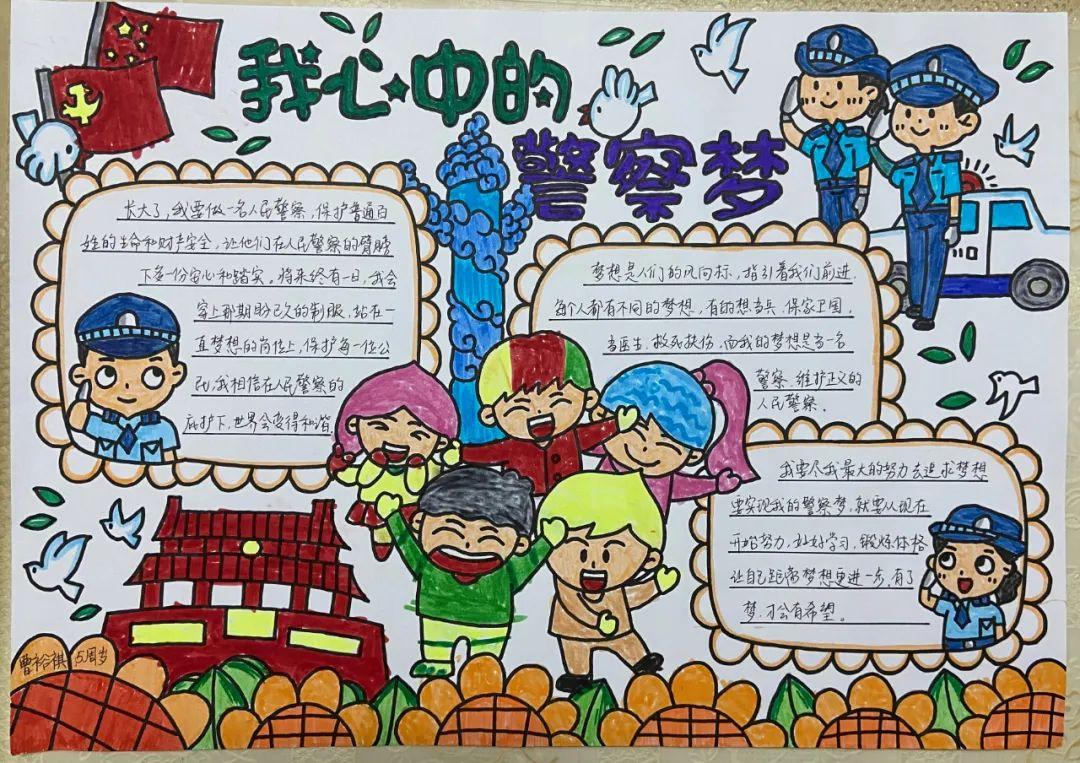 我心中的
警察梦
长大了，我要做一名人民警察，保护普通百
姓的生命和财产安全，让他们在人民警察的臂膀
下多一份安心和踏实。将来终有一日，我会
穿上那期盼已久的制服，站在一
直梦想的岗位上，保护每一位公
民，我相信在人民警察的
庇护下，世界会变得和谐.
梦想是人们的风向标，指引着我们前进.
每个人都有不同的梦想，有的想当兵.保家卫国，
当医生.救死扶伤，而我的梦想是当一名
警察.维护正义的
人民警察.
我要尽我最大的努力去追求梦想
要实现我的警察梦，就要从现在
开始努力，好好学习，锻炼体格
让自己距离梦想更进一步，有了
梦.才会有希望。
曹裕祺 5周岁